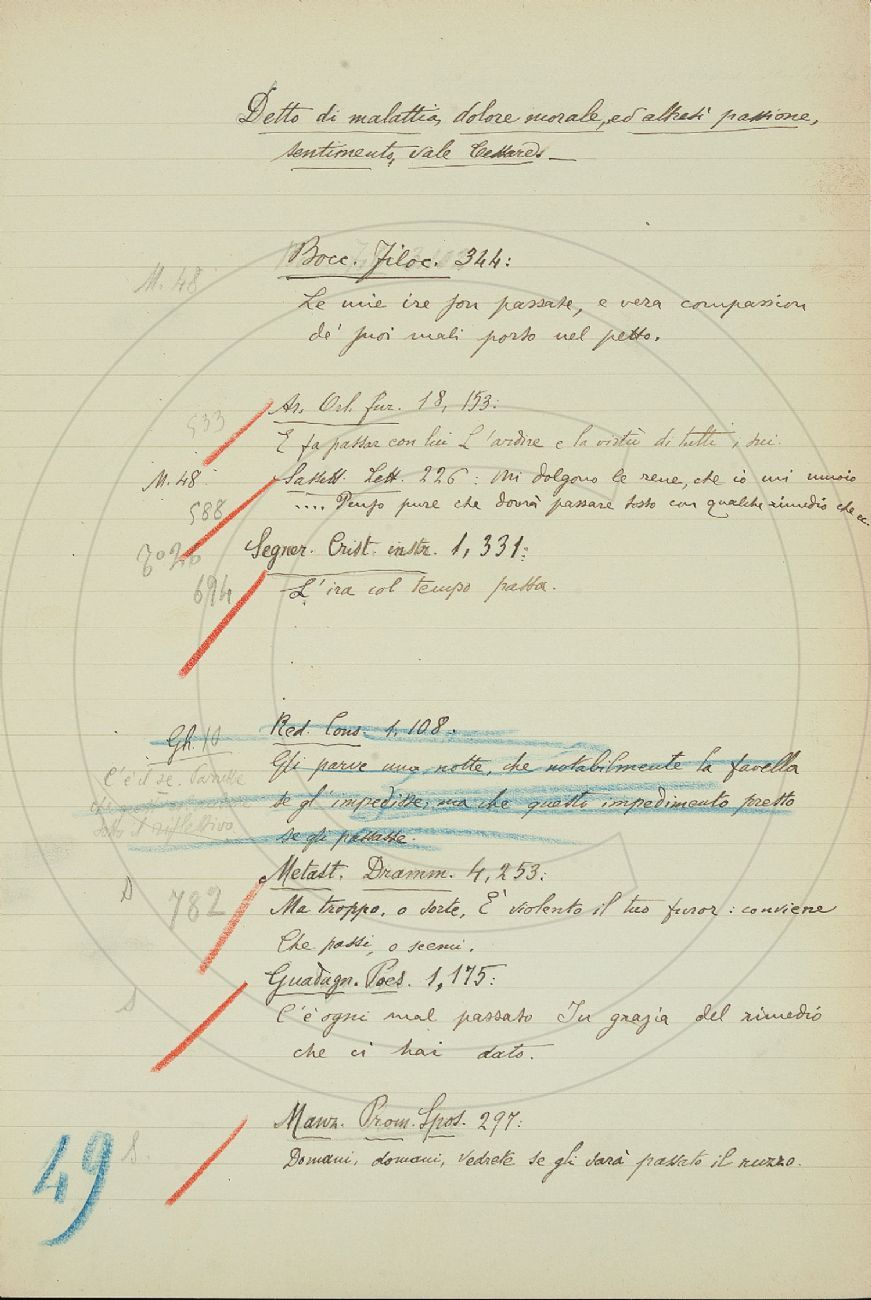 Detto di malattia, dolore morale, ed altresì passione,
sentimento, vale Cessare. —
Bocc. Filoc. 344:
M. 48
Le mie ire son passate, e vera compassion
de' suoi mali porto nel petto.
Ar. Orl. fur. 18, 153:
533
E fa passar con lui L'ardire e la virtù di tutti, sui.
M. 48. Sassett. Lett. 226: Mi dolgono le rene, che io mi muoio
588 .... Penso pure che dovrà passare tosto con qualche rimedio che ec.
Segner. Crist. instr. 1, 331:
694
L'ira col tempo passa.
Gh. 10 Red. Cons. 1, 108.
Gli parve una notte, che notabilmente la favella
C'è il se. Parrebbe
se gl'impedisse; ma che questo impedimento presto
sotto il riflessivo
se gli passasse.
Metast. Dramm. 4, 253:
D 782
Ma troppo, o sorte, È violento il tuo furor: conviene
Che passi, o scemi.
Guadagn. Poes. 1, 175:
C'è ogni mal passato In grazia del rimedio
che ci hai dato.
Manz. Prom. Spos. 297:
Domani, domani, vedrete se gli sarà passato il ruzzo.
49